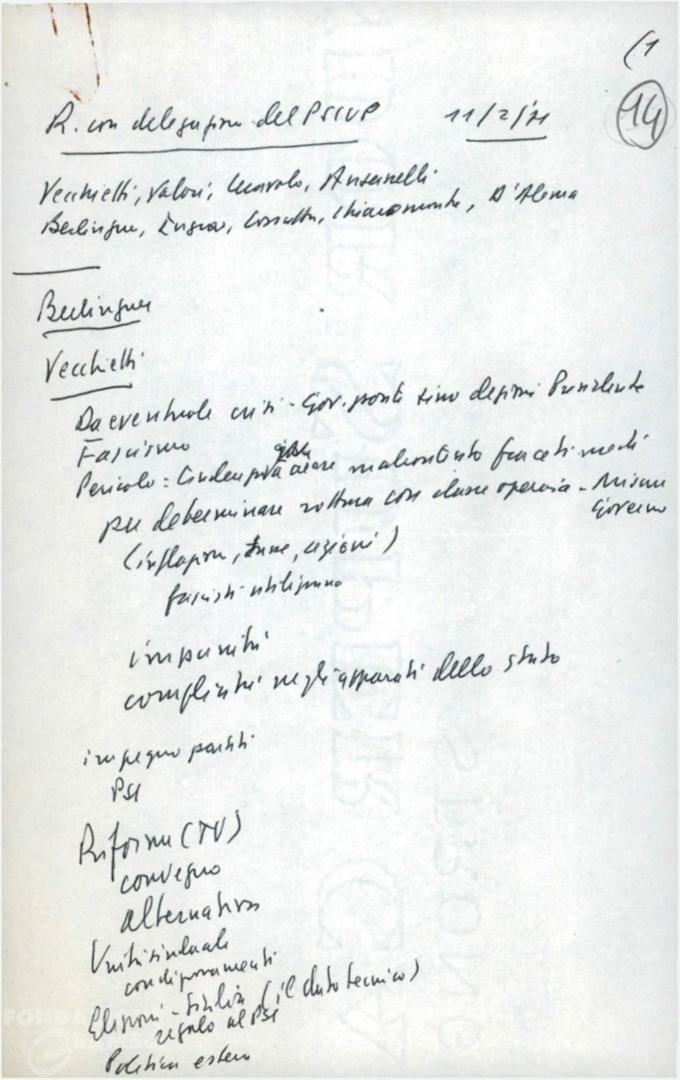 (1
14
R. con delegazione del PSIUP 11/2/71
Vecchietti, Valori, Ceravolo, Ansanelli
Berlinguer, Ingrao, Cossutta, Chiaromonte, D'Alema
Berlinguer
Vecchietti
Da eventuale crisi - Gov. ponte sino elezioni Presidente
Fascismo
Pericolo: creare malcontento fra ceti medi
per determinare rottura con classe operaia - Misure
Governo
(inflazione, regioni)
fascisti utilizzano
impunità
complicità negli apparati dello stato
impegno partiti
PSI
Riforme (TV)
convegno
alternativa
Unità sindacale
condizionamenti
Elezioni - Sicilia (il dato tecnico)
regalo al PSI
Politica estera